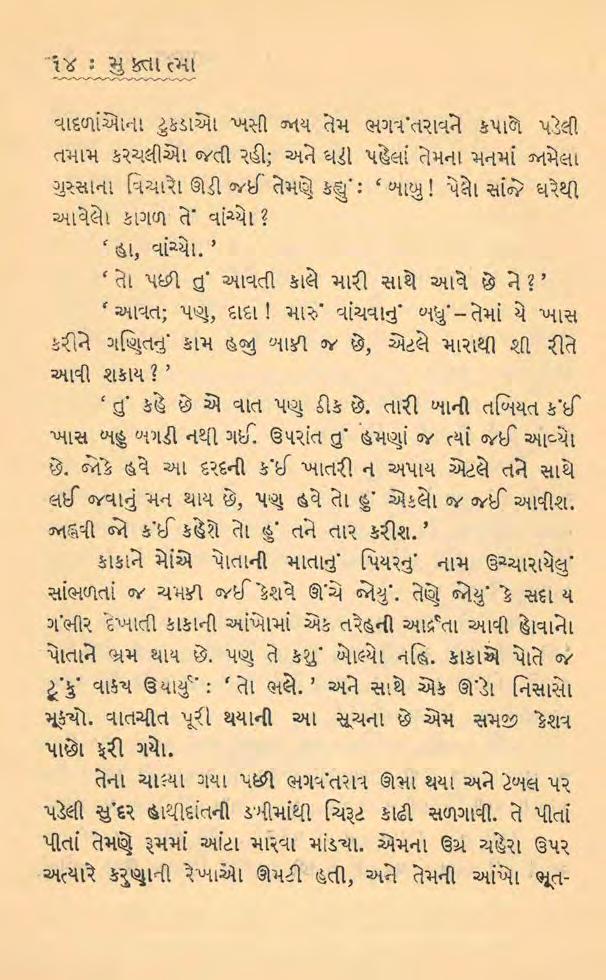 ૧૪ : મુક્તાત્મા
વાદળાંઓના ટુકડાઓ ખસી જાય તેમ ભગવંતરાવને કપાળે પડેલી
તમામ કરચલીઓ જતી રહી; અને ઘડી પહેલાં તેમના મનમાં જામેલા
ગુસ્સાના વિચારો ઊડી જઈ તેમણે કહ્યું : ‘બાબુ ! પેલો સાંજે ઘરેથી
આવેલો કાગળ તેં વાંચ્યો ?
‘ હા, વાંચ્યો. ’
‘ તો પછી તું આવતી કાલે મારી સાથે આવે છે ને ? ’
‘ આવત; પણ, દાદા ! મારું વાંચવાનું બધું – તેમાં યે ખાસ
કરીને ગણિતનું કામ હજી બાકી જ છે, એટલે મારાથી શી રીતે
આવી શકાય ? ’
‘ તું કહે છે એ વાત પણ ઠીક છે. તારી બાની તબિયત કંઈ
ખાસ બહુ બગડી નથી ગઈ. ઉપરાંત તું હમણાં જ ત્યાં જઈ આવ્યો
છે. જોકે હવે આ દરદની કંઈ ખાતરી ન અપાય એટલે તને સાથે
લઈ જવાનું મન થાય છે, પણ હવે તો હું એકલો જ જઈ આવીશ.
જાહ્નવી જો કંઈ કહેશે તો હું તને તાર કરીશ. ’
કાકાને મોંએ પોતાની માતાનું પિયરનું નામ ઉચ્ચારાયેલું
સાંભળતાં જ ચમકી જઈ કેશવે ઊંચે જોયું. તેણે જોયું કે સદા ય
ગંભીર દેખાતી કાકાની આંખોમાં એક તરેહની આર્દ્રતા આવી હોવાનો
પોતાને ભ્રમ થાય છે. પણ તે કશું બોલ્યો નહિ. કાકાએ પોતે જ
ટૂંકું વાક્ય ઉચાર્યું : ‘ તો ભલે. ’ અને સાથે એક ઊંડો નિસાસો
મૂક્યો. વાતચીત પૂરી થયાની આ સૂચના છે એમ સમજી કેશવ
પાછો ફરી ગયો.
તેના ચાલ્યા ગયા પછી ભગવંતરાવ ઊભા થયા અને ટેબલ પર
પડેલી સુંદર હાથીદાંતની ડબીમાંથી ચિરૂટ કાઢી સળગાવી. તે પીતાં
પીતાં તેમણે રૂમમાં આંટા મારવા માંડ્યા. એમના ઉગ્ર ચહેરા ઉપર
અત્યારે કરુણાની રેખાઓ ઊમટી હતી, અને તેમની આંખો ભૂત-